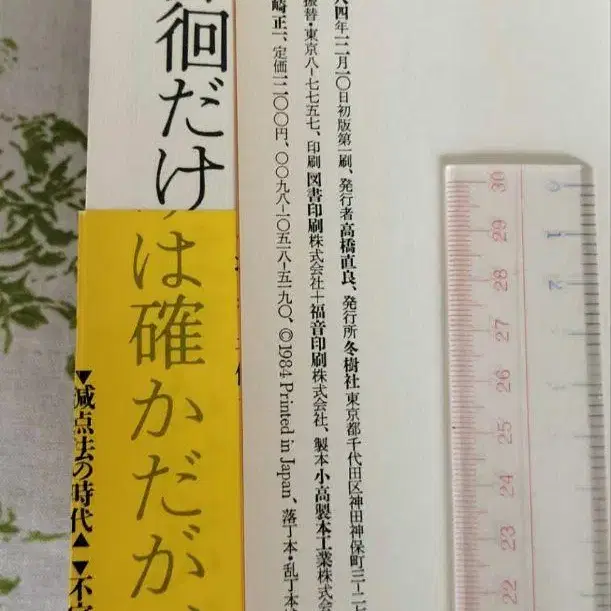 八四年一二月一〇日初版第一刷、発行者高橋直良、発行所冬樹社東京都千代田区神田神保町三ー二
振替・東京八ー七七五七、印刷図書印刷株式会社+福音印刷株式会社、製本小高製本工業株式
崎正一、定価一二〇〇円、〇〇九八ー一〇五一八ー五一九〇、©1984 Printed in Japan、落丁本・乱丁本
徊だけは確かだが、
▼減点法の時代▲ ▼不
30 29 28 27 26 25 24 23 22
0 1 2